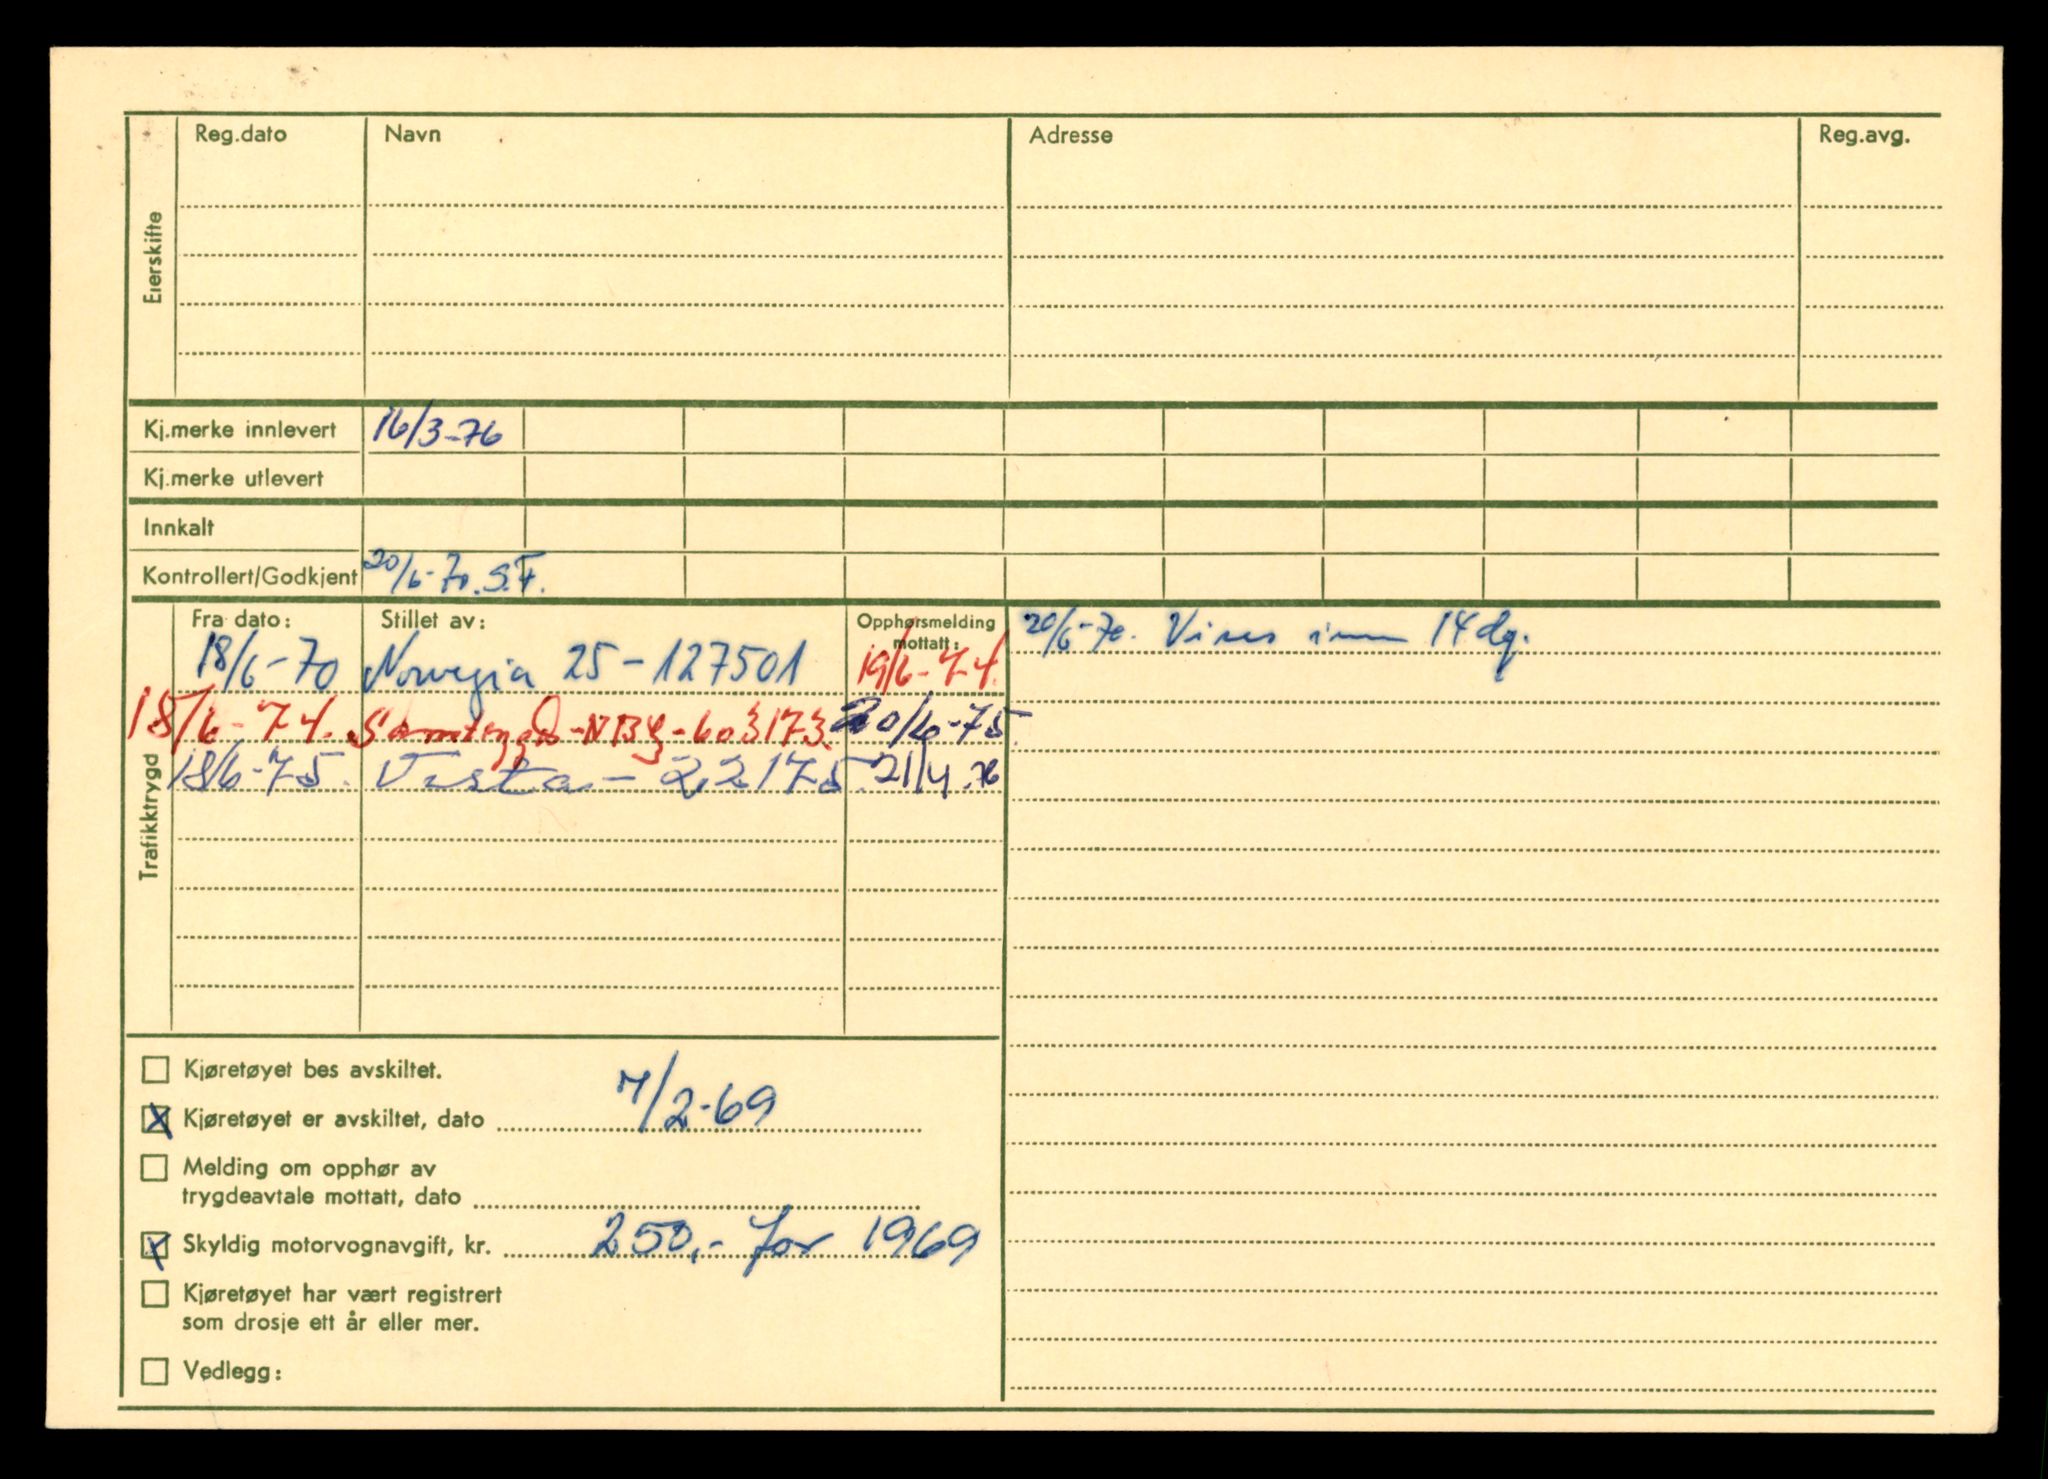 Eierskifte
Reg.dato Navn Adresse Reg.avg.
Kj.merke innlevert 16/3-76
Kj.merke utlevert
Innkalt
Kontrollert/Godkjent 20/6-70. S.F.
Trafikktrygd
Fra dato: Stillet av: Opphørsmelding mottatt:
18/6-70 Norwegia 25-127501 19/6-74.
18/6-74. Samtrygd - - 603173 20/6-75.
18/6-75. Vesta - 22175. 21/4.76
20/6-70. Vises 14 dg.
Kjøretøyet bes avskiltet.
X Kjøretøyet er avskiltet, dato 7/2-69
Melding om opphør av
trygdeavtale mottatt, dato
X Skyldig motorvognavgift, kr. 250,- for 1969
Kjøretøyet har vært registrert
som drosje ett år eller mer.
Vedlegg: